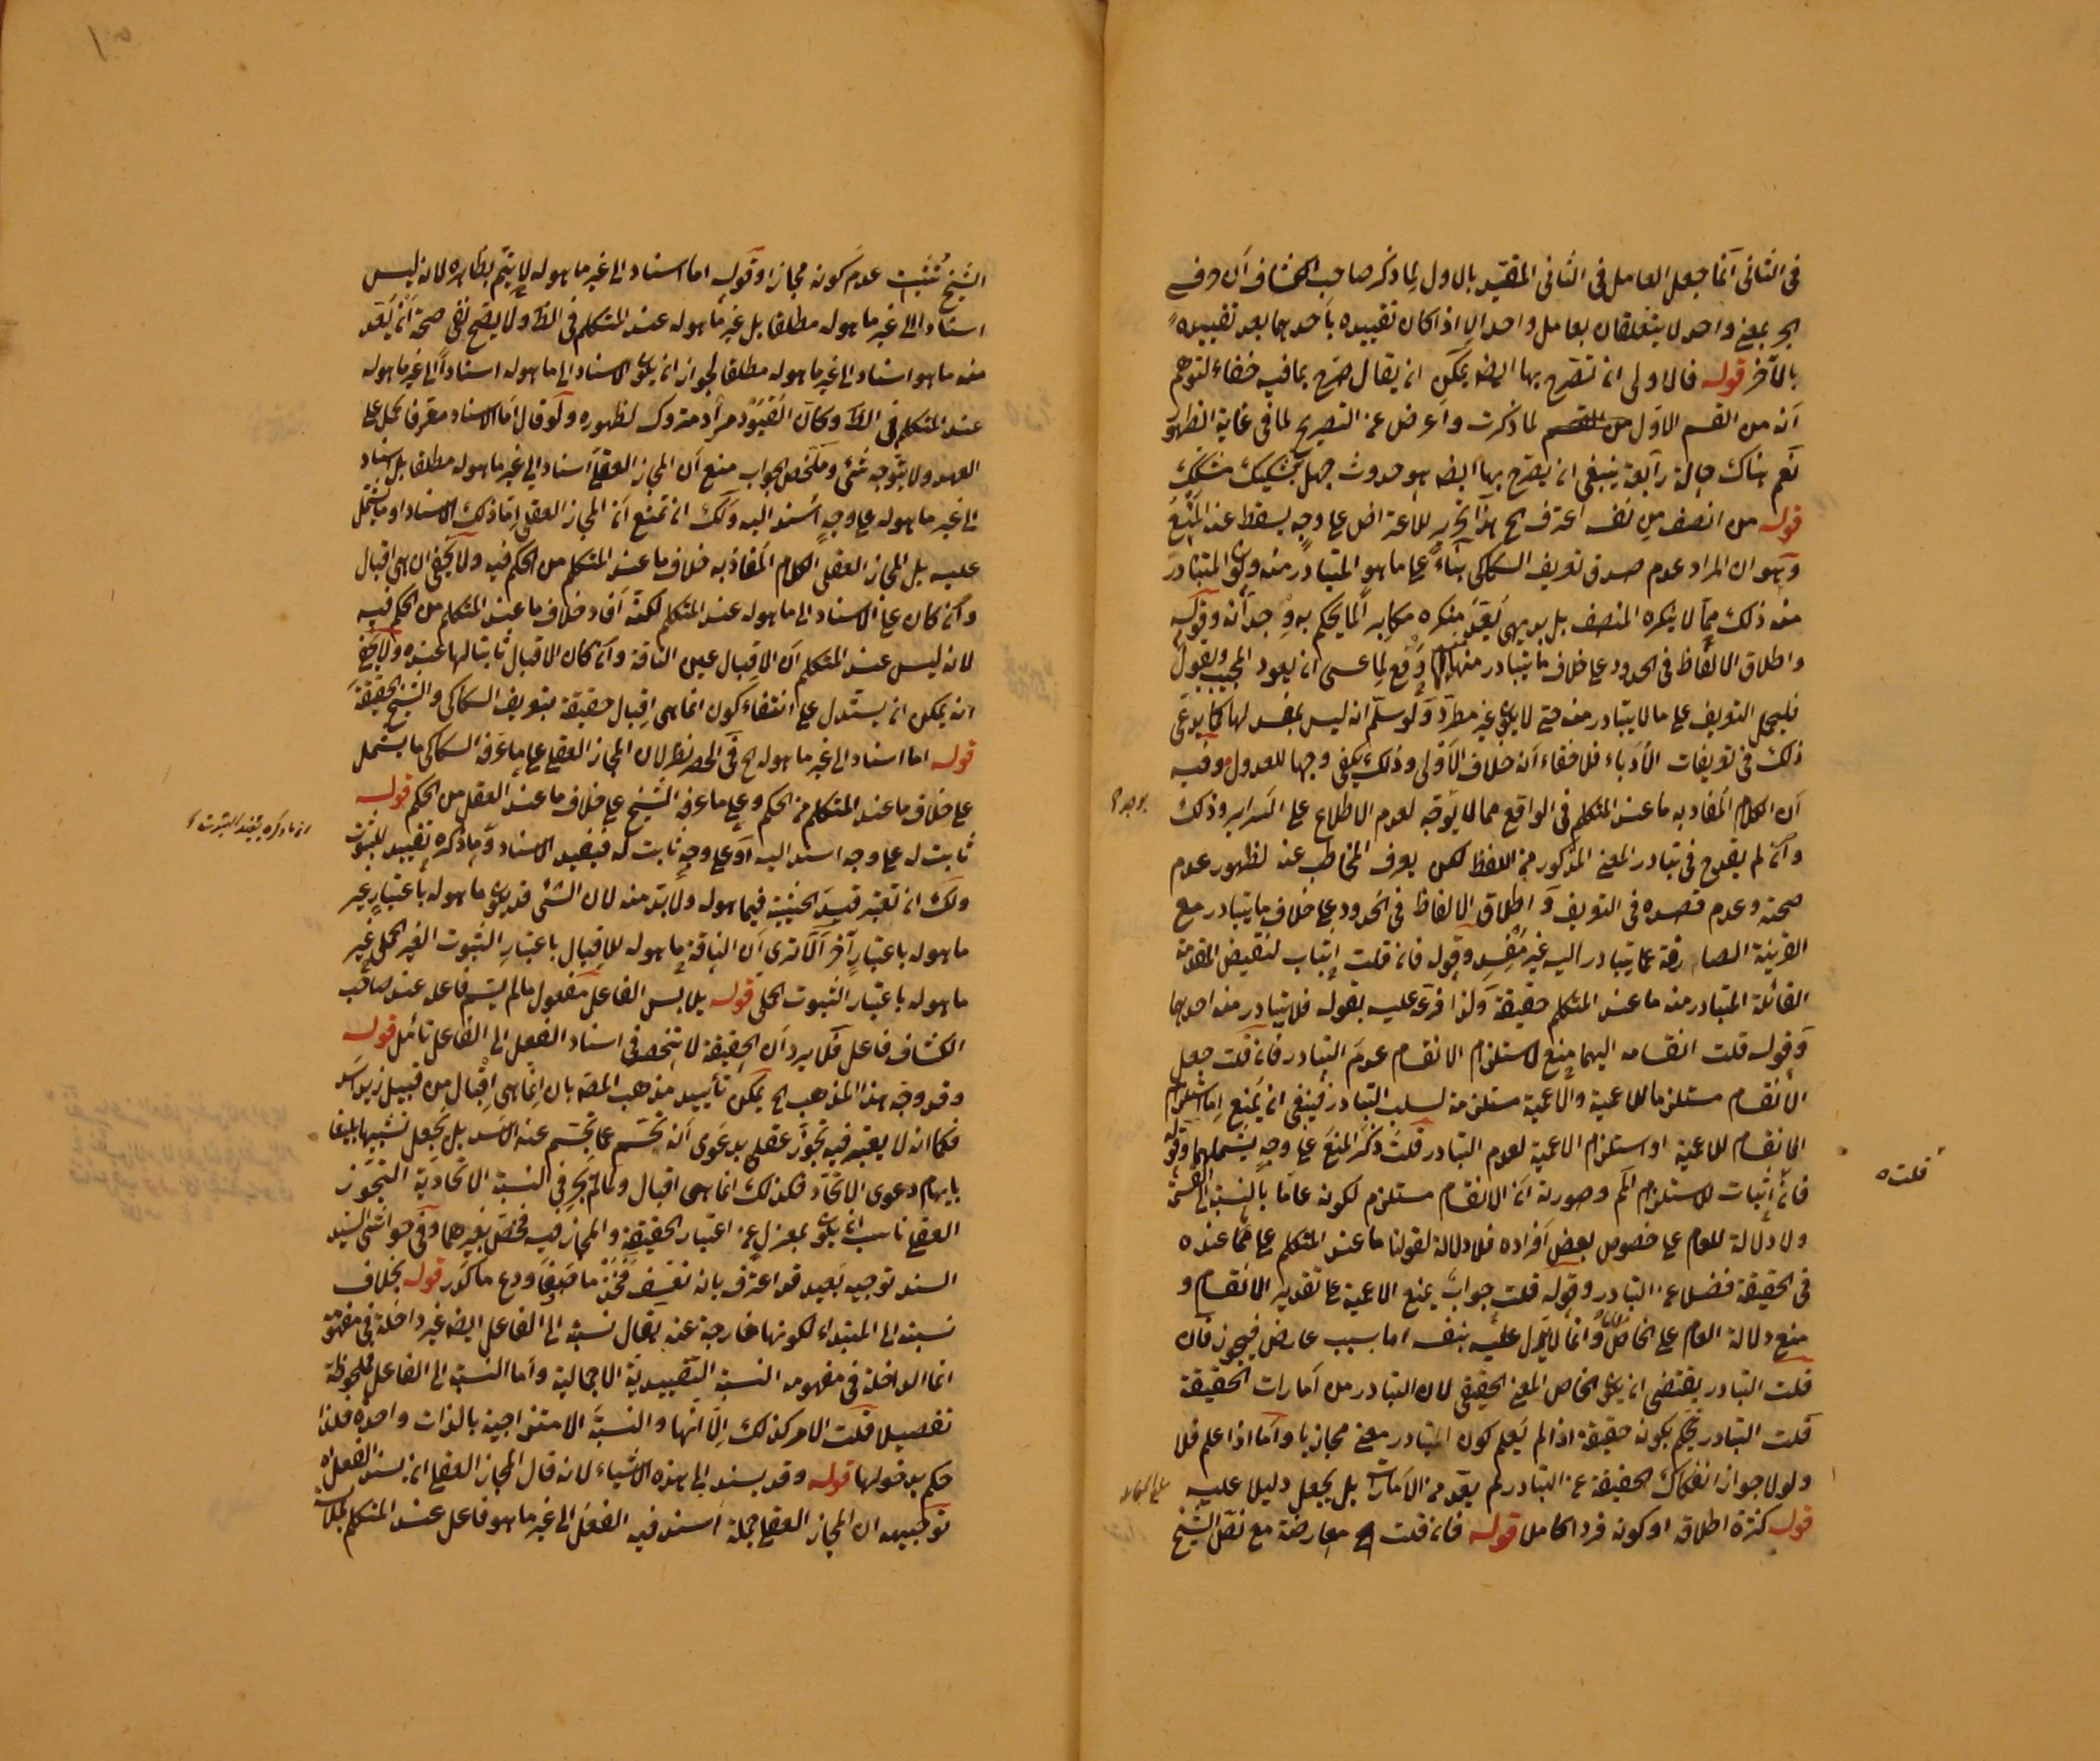 فى الثانى انما جعل العامل فى الثانى المقيد بالاول لما ذكر صاحب الكشاف ان حرف
الجر بمعنى واحد لا يتعلقان بعامل واحد الا اذا كان تقييده باحدهما بعد تقييده
بالآخر قوله فالاولى ان تصرح بها ايضا يمكن ان يقال صرح بما فيه خفاء لتوهم
انه من القسم الاول لما ذكرت واعرض عن التصريح لما فى غاية الظهور
نعم هناك حالة رابعة ينبغى ان يصرح بها ايضا هو حدوث جهل بتشكيك مشكك
قوله من انصف من نفسه اعترف هذا تحرير للاعتراض على وجه يسقط عنه المنع
وهو ان المراد عدم صدق تعريف السكاكى بناء على ما هو المتبادر منه وكون المتبادر
منه ذلك مما لا ينكره المنصف بل بديهى يعد منكره مكابرا لما يحكم به وجدانه وقوله
واطلاق الالفاظ فى الحدود على خلاف ما يتبادر منها دفع لما عسى ان يعود المجيب ويقول
فليحمل التعريف على ما لا يتبادر منه حتى لا يكون غير مطرد ولو سلم انه ليس بمفسد لها كما يدعى
ذلك فى تعريفات الادباء فلا خفاء انه خلاف الاولى وذلك يكفى وجها للعدول وفيه
ان الكلام المفاد به ما عند المتكلم فى الواقع مما لا يوجه لعدم الاطلاع على السرائر وذلك
وان لم يقدح فى تبادر المعنى المذكور من اللفظ لكن يصرف المخاطب عنه لظهور عدم
صحته وعدم قصده فى التعريف واطلاق الالفاظ فى الحدود على خلاف ما يتبادر مع
القرينة الصارفة عما يتبادر اليه غير مفسد وقوله فان قلت اثبات لنقيض المقدمة
القائلة المتبادر منه ما عند المتكلم حقيقة ولذا فرع عليه بقوله فلا يتبادر منه احدهما
وقوله قلت انقسامه اليهما منع لاستلزام الانقسام عدم التبادر فان قلت جعل
الانقسام مستلزما للاعمية والاعمية مستلزمة لسلب التبادر فينبغى ان يمنع اما استلزام
الانقسام للاعمية او استلزام الاعمية لعدم التبادر قلت ذكر المنع على وجه يشملهما وقوله
فان اثبات للاستلزام وصورته ان الانقسام مستلزم لكونه عاما بالنسبة الى القسمة
ولا دلالة للعام على خصوص بعض افراده فلا دلالة لقولنا ما عند المتكلم على ما عنده
فى الحقيقة فضلا عن التبادر وقوله قلت جواب يمنع الاعمية على تقدير الانقسام و
منع دلالة العام على الخاص وانما لا يدل عليه بنفسه اما بسبب عارض فيجوز فان
قلت التبادر يقتضى ان يكون الخاص المعنى الحقيقى لان التبادر من امارات الحقيقة
قلت التبادر يحكم بكونه حقيقة اذا لم يعلم كون المتبادر معنى مجازيا واما اذا علم فلا
ولولا جواز انفكاك الحقيقة عن التبادر لم يعد من الامارات بل يجعل دليلا عليه
قوله كثرة اطلاقه او كونه فردا كاملا قوله فان قلت معارضة مع نقل الشيخ
قلت
الشيخ تثبت عدم كونه مجازا وقوله اما اسناد الى غير ما هو له لا يتم بظاهره لانه ليس
اسنادا الى غير ما هو له مطلقا بل غير ما هو له عند المتكلم فى الظ ولا يصح نفى صحة ان يعد
منه ما هو اسناد الى غير ما هو له مطلقا لجواز ان يكون الاسناد الى ما هو له اسنادا الى غير ما هو له
عند المتكلم فى الظ وكان القيود مراد متروك لظهوره ولو قال اما الاسناد معرفا يحمل على
العهد ولا يتوجه شئ وملخص الجواب منع ان المجاز العقلى اسناد الى غير ما هو له مطلقا بل اسناد
الى غير ما هو له على وجه اسند اليه ولك ان تمنع ان المجاز العقلى اما ذلك الاسناد او ما يشتمل
عليه بل المجاز العقلى الكلام المفاد به خلاف ما عند المتكلم من الحكم فيه ولا يخفى ان هى اقبال
وان كان على الاسناد الى ما هو له عند المتكلم لكنه افاد خلاف ما عند المتكلم من الحكم فيه
لانه ليس عند المتكلم ان الاقبال عين الناقة وان كان الاقبال ثابتا لها عنده ولا يخفى
انه يمكن ان يستدل على انتفاء كون انما هى اقبال حقيقة بتعريف السكاكى والشيخ الحقيقة
قوله اما اسناد الى غير ما هو له الخ فى الحصر نظر لان المجاز العقلى على ما عرفه السكاكى ما يشتمل
على خلاف ما عند المتكلم من الحكم وعلى ما عرفه الشيخ على خلاف ما عند العقل من الحكم قوله
ثابت له على وجه اسند اليه او على وجه ثابت له فيقيد الاسناد وما ذكره تقييد للثبوت
ولك ان تعتبر قيد الحيثية فيما هو له ولا بد منه لان الشئ قد يكون ما هو له باعتبار غير
ما هو له باعتبار آخر الا ترى ان الناقة ما هو له للاقبال باعتبار الثبوت الغير الحملى غير
ما هو له باعتبار الثبوت الحملى قوله يلابس الفاعل مفعول ما لم يسم فاعله عند صاحب
الكشاف فاعل فلا يرد ان الحقيقة لا تنحصر فى اسناد الفعل الى الفاعل تأمل قوله
وقد وجه هذا المذهب الخ يمكن تأييد مذهب المصنف بان انما هى اقبال من قبيل زيد اسد
فكما انه لا يعتبر فيه تجوز عقلى بدعوى انه تجسم عما تجسم عنه الاسد بل يجعل تشبيها بليغا
بايهام دعوى الاتحاد فكذلك انما هى اقبال ولما لم يجر فى النسبة الاتحادية التجوز
العقلى ناسب ان يكون بمعزل عن اعتبار الحقيقة والمجاز فيه فخص بغيرهما وفى حواشى السيد
السند توجيه بعيد قد اعترف بانه تعسف فخذ ما صفا ودع ما كدر قوله بخلاف
نسبته الى المبتداء لكونها خارجة عنه يقال نسبته الى الفاعل ايضا غير داخلة فى مفهومه
انما الداخلة فى مفهومه النسبة التقييدية الاجمالية واما النسبة الى الفاعل فملحوظة
تفصيلا قلت الامر كذلك الا انها والنسبة الامتزاجية بالذات واحدة فلذا
حكم بدخولها قوله وقد يسند الى هذه الاشياء لانه قال المجاز العقلى ان يسند الفعل
توجيهه ان المجاز العقلى جملة اسند فيه الفعل الى غير ما هو فاعل عند المتكلم لملابسة